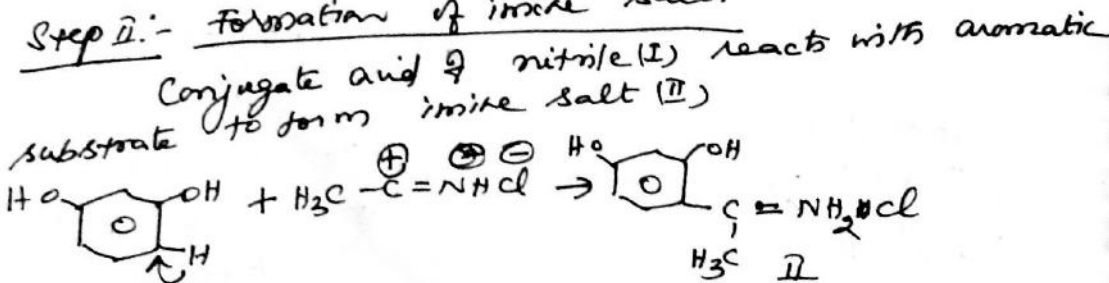 Step II:- Formation of imine
Conjugate acid of nitrile (I) reacts with aromatic
substrate to form imine salt (II)
HO OH H + H3C - C = NHCl → HO OH C = NH2Cl
H3C II